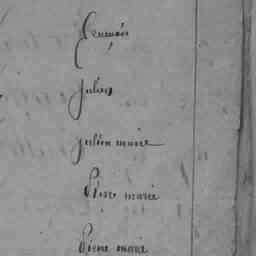 julien
julien marie
Pierre marie
Pierre marie